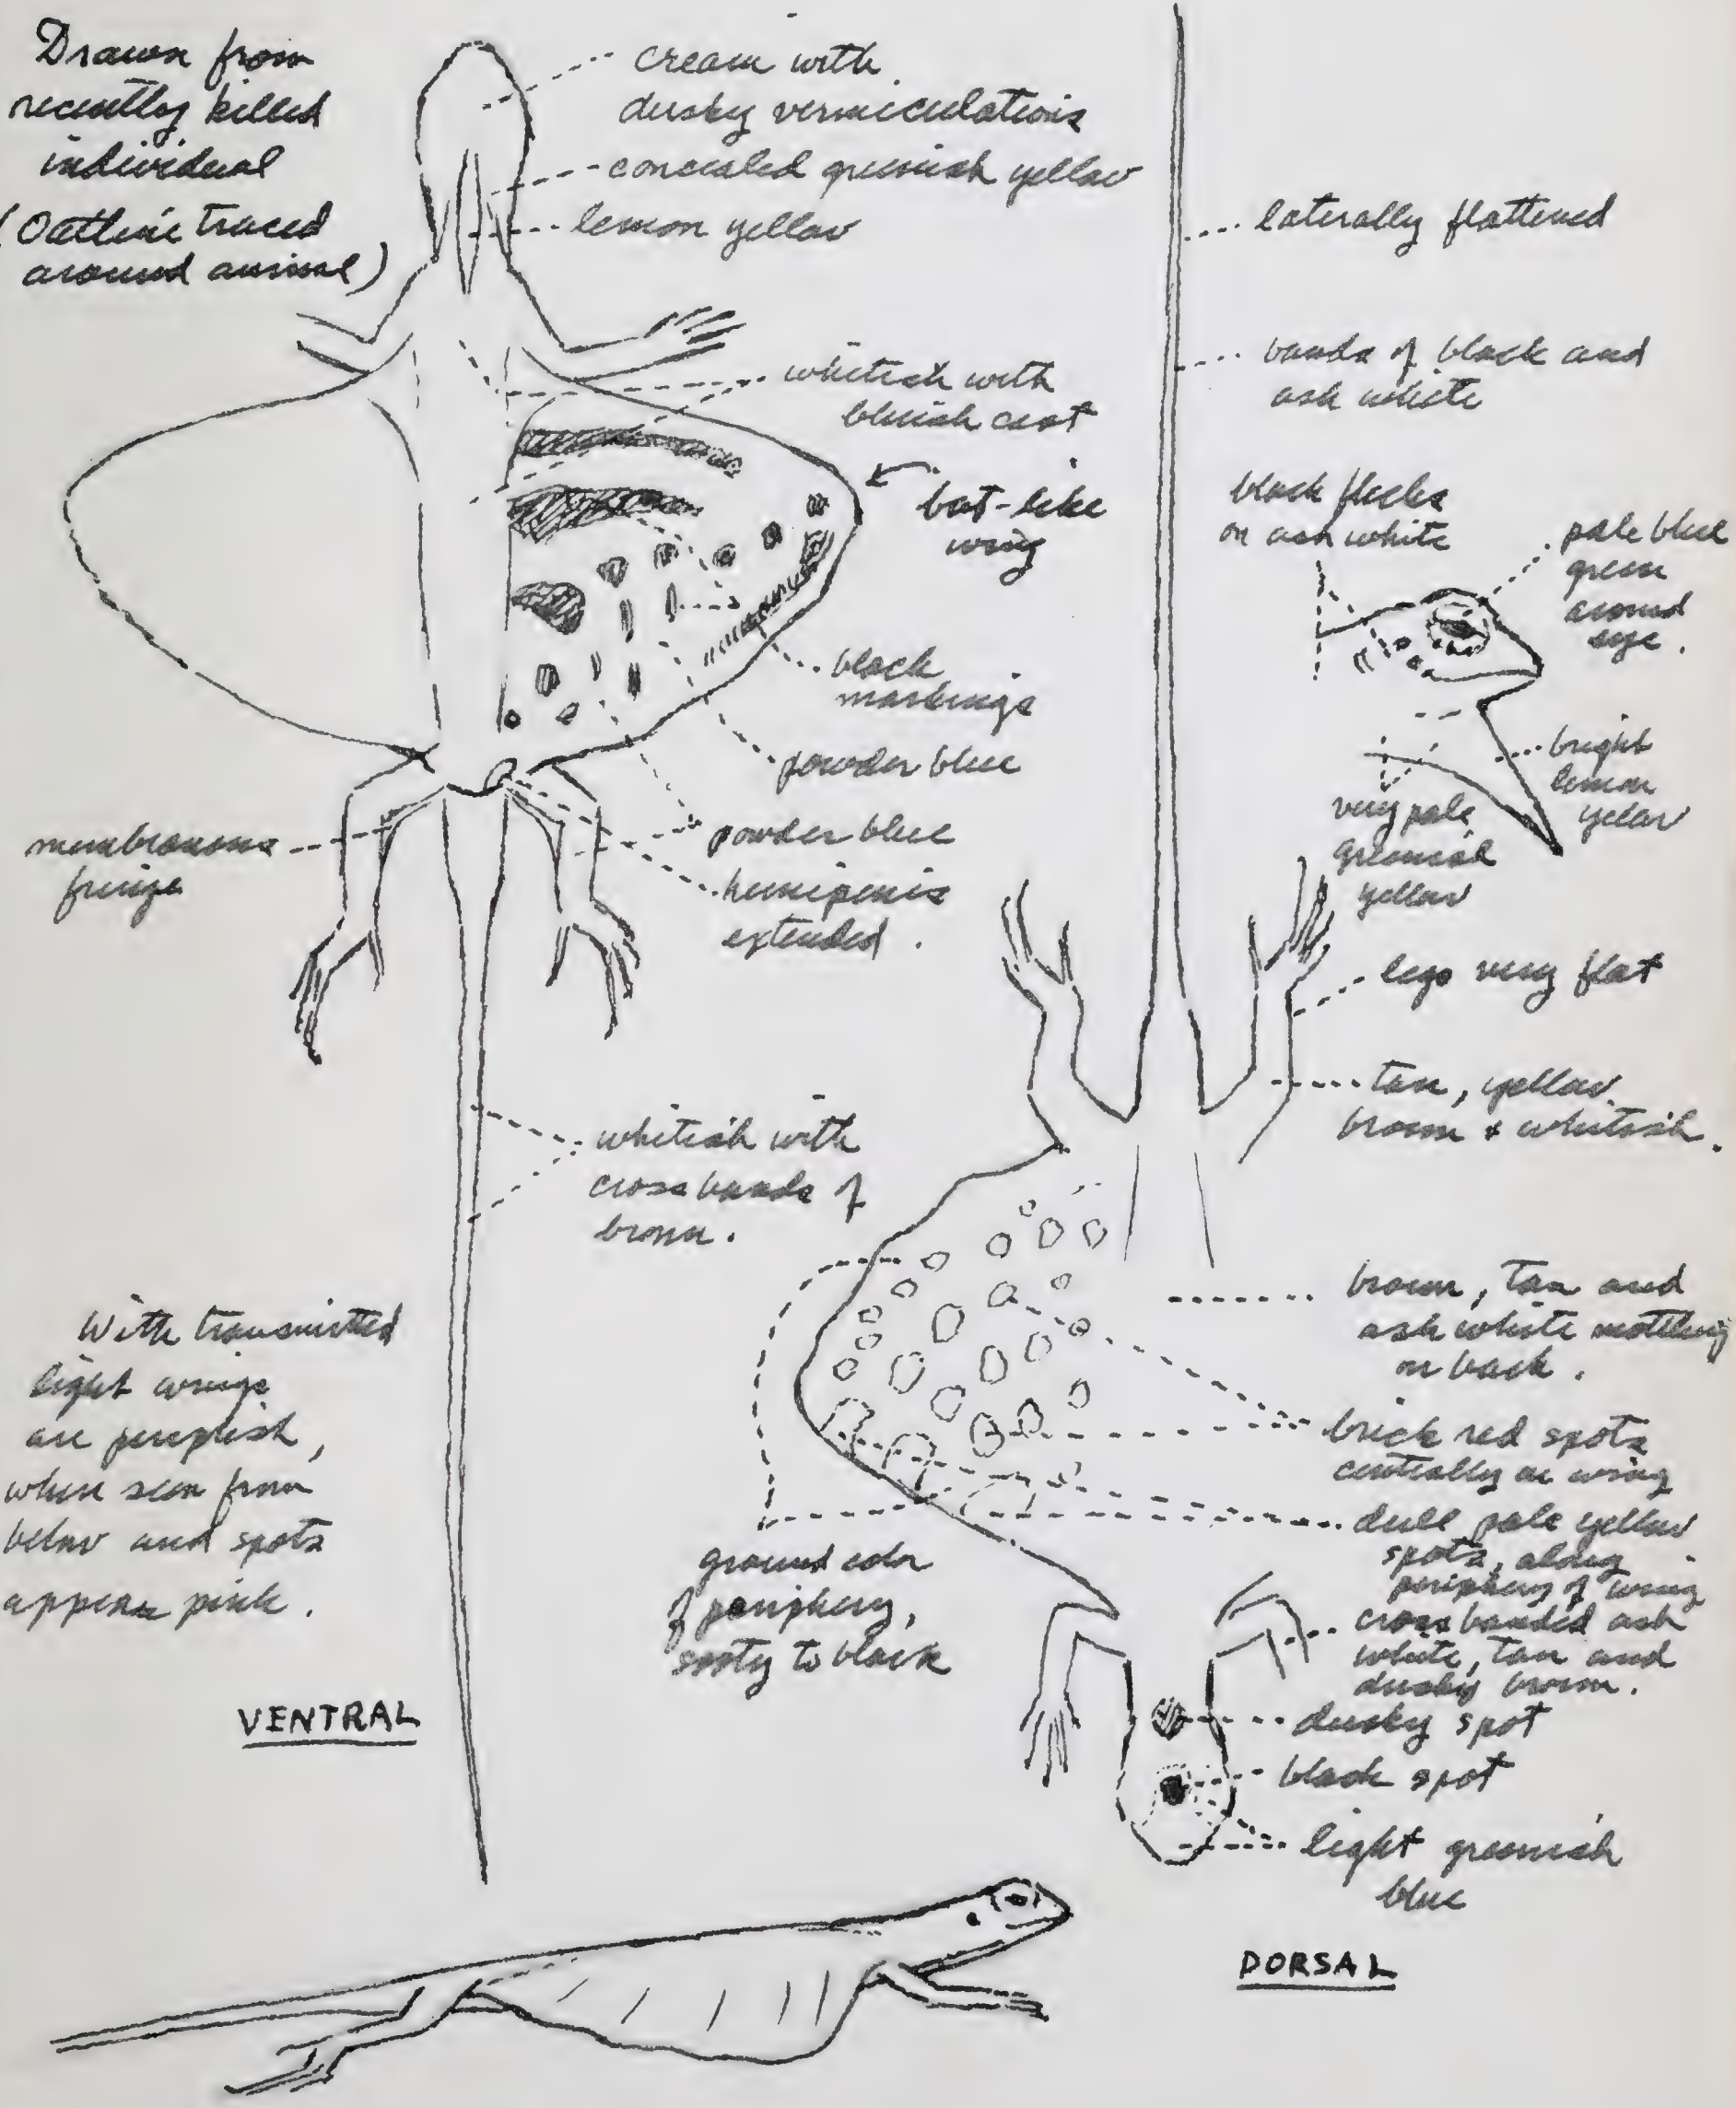 Drawn from
recently killed
individual
(Outline traced
around animal)
cream with
dusky vermiculations
concealed greenish yellow
lemon yellow
whitish with
bluish cast
bat-like
wing
black
markings
powder blue
powder blue
hemipenis
extended.
membranous
fringe
whitish with
cross bands of
brown.
With transmitted
light wings
are purplish,
when seen from
below and spots
appear pink.
VENTRAL
laterally flattened
bands of black and
ash white
black flecks
on ash white
pale blue
green
around
eye.
bright
lemon
yellow
very pale
greenish
yellow
legs very flat
tan, yellow
brown + whitish.
brown, tan and
ash white mottling
on back.
brick red spots
centrally on wing
dull pale yellow
spots, along
periphery of wing
cross banded ash
white, tan and
dusky brown.
dusky spot
black spot
light greenish
blue
ground color
of periphery,
sooty to black
DORSAL